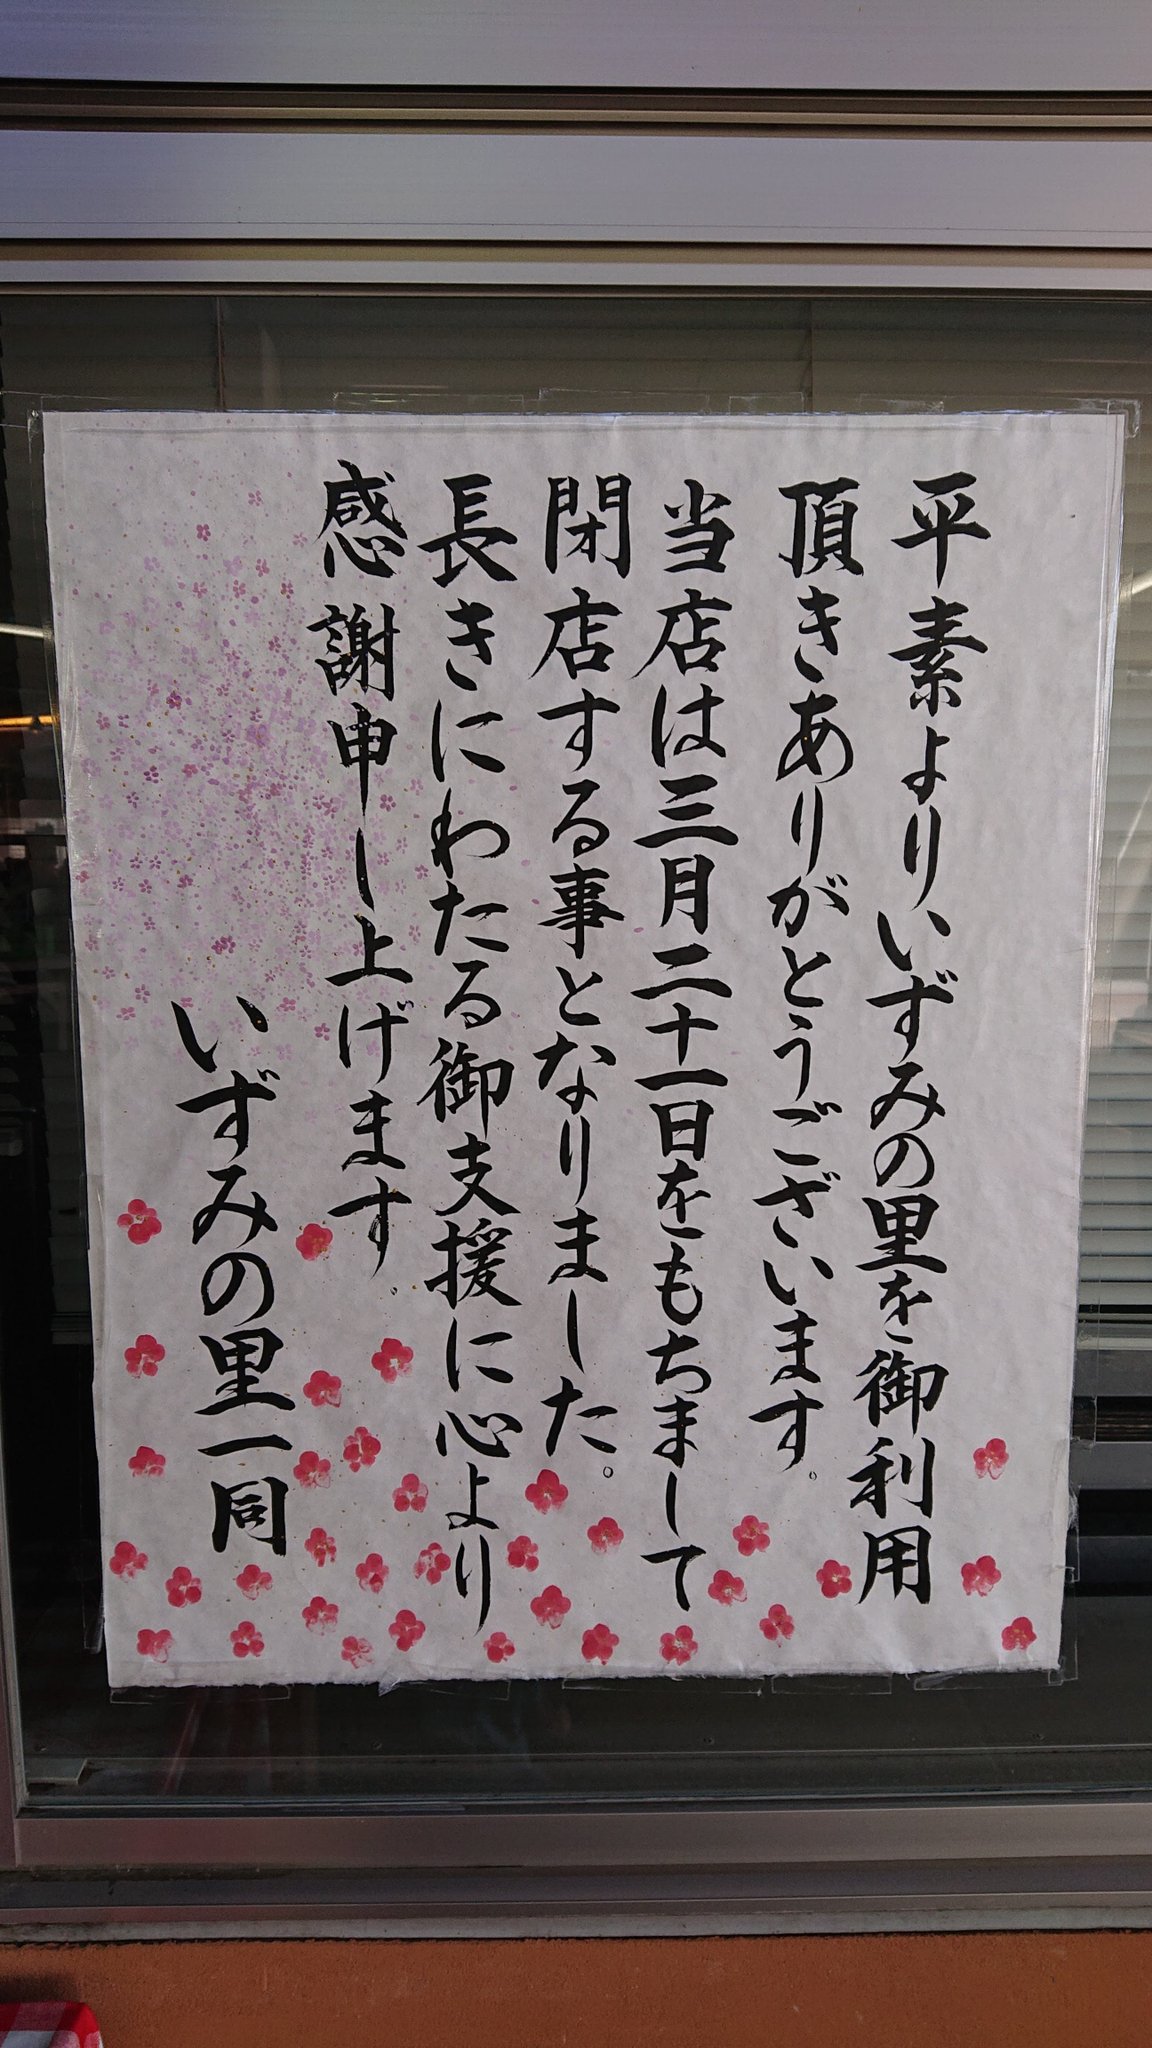 平素よりいずみの里を御利用
頂きありがとうございます。
当店は三月二十一日をもちまして
閉店する事となりました。
長きにわたる御支援に心より
感謝申し上げます。
いずみの里一同